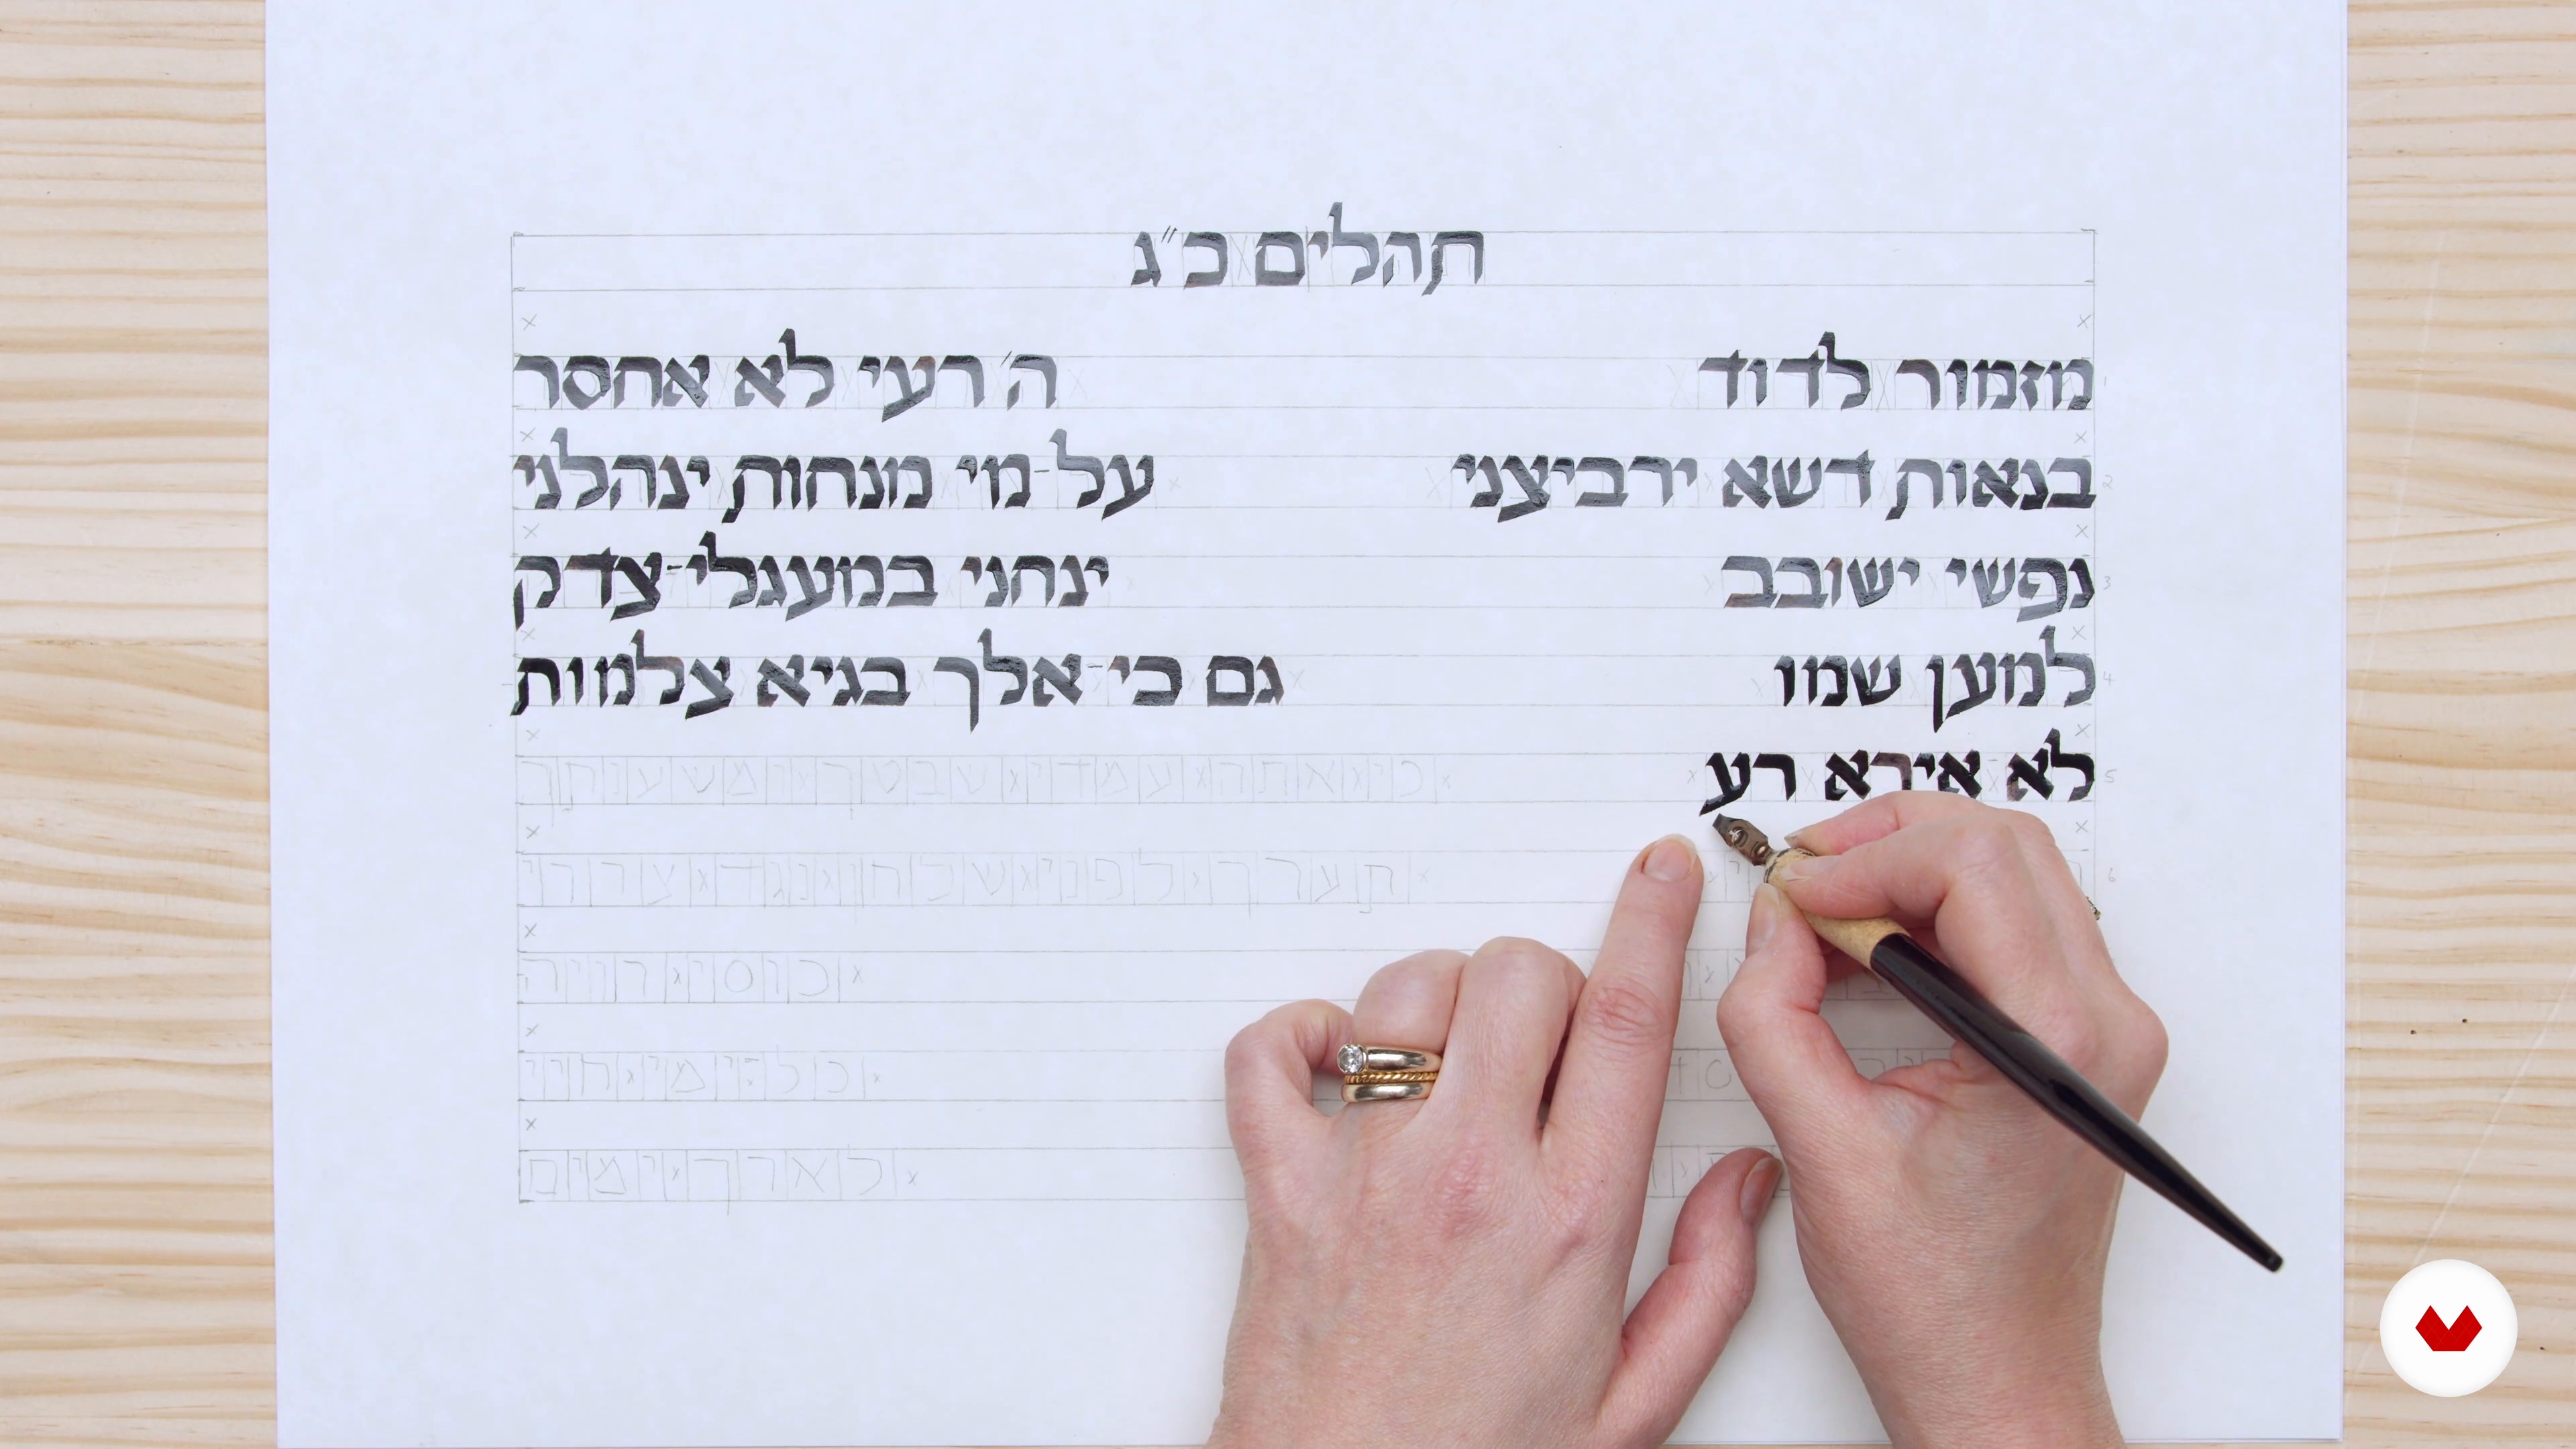 תהלים כ״ג
מזמור לדוד ה׳ רעי לא אחסר
בנאות דשא ירביצני על-מי מנחות ינהלני
נפשי ישובב ינחני במעגלי-צדק
למען שמו גם כי-אלך בגיא צלמות
לא אירא רע כי אתה עמדי שבטך ומשענתך
תערך לפני שלחן נגד צררי
כוסי רויה
כל-ימי חיי
לארך ימים